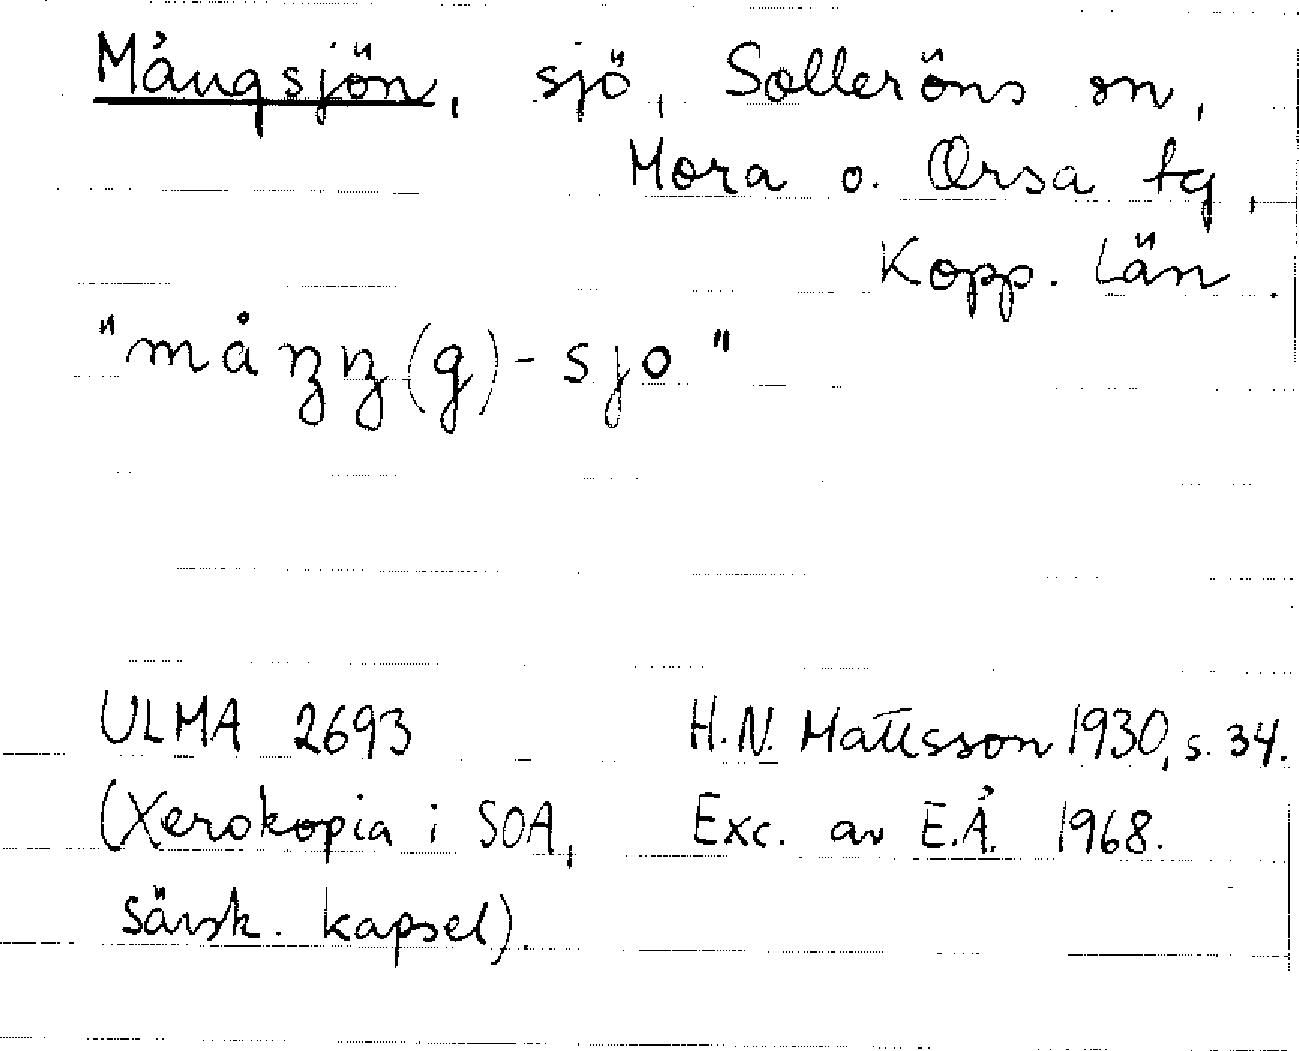 Mångsjön, sjö, Solleröns sn,
Mora o. Orsa tg,
Kopp. län.
"måŋŋ(g)-sjo"
ULMA 2693 H.N. Mattsson 1930, s. 34.
(Xerokopia i SOA, Exc. av E.Å. 1968.
särsk. kapsel).